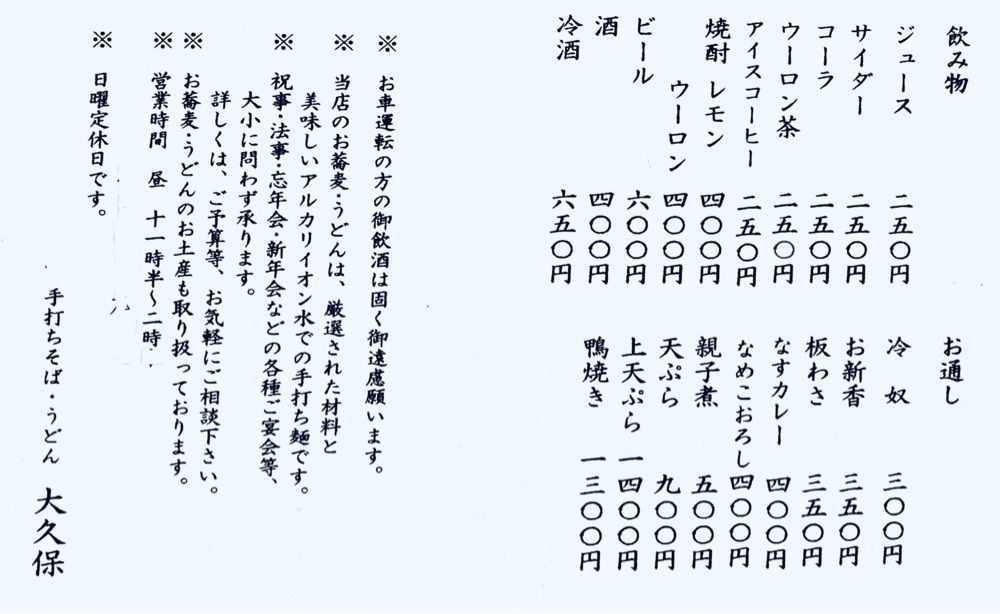 飲み物
ジュース 二五〇円
サイダー 二五〇円
コーラ 二五〇円
ウーロン茶 二五〇円
アイスコーヒー 二五〇円
焼酎 レモン 四〇〇円
ウーロン 四〇〇円
ビール 六〇〇円
酒 四〇〇円
冷酒 六五〇円
お通し
冷 奴 三〇〇円
お新香 三五〇円
板わさ 三五〇円
なすカレー 四〇〇円
なめこおろし 四〇〇円
親子煮 五〇〇円
天ぷら 九〇〇円
上天ぷら 一四〇〇円
鴨焼き 一三〇〇円
※ お車運転の方の御飲酒は固く御遠慮願います。
※ 当店のお蕎麦・うどんは、厳選された材料と
美味しいアルカリイオン水での手打ち麺です。
※ 祝事・法事・忘年会・新年会などの各種ご宴会等、
大小に問わず承ります。
詳しくは、ご予算等、お気軽にご相談下さい。
※ お蕎麦・うどんのお土産も取り扱っております。
※ 営業時間 昼 十一時半〜二時
※ 日曜定休日です。
手打ちそば・うどん 大久保